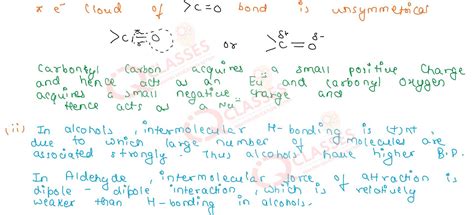 * e⁻ Cloud of >C=O bond is unsymmetrical
>C=O or >C=O δ+ δ-
Carbonyl Carbon acquires a small positive Charge
and hence acts as an E and carbonyl Oxygen
acquires a small negative charge and
Hence acts as a Nu
(ii) In alcohols, intermolecular H-bonding is
due to which large number of molecules are
associated strongly. Thus alcohols have higher B.P.
In Aldehyde, intermolecular force of attraction is
dipole - dipole interaction, which is relatively
weaker than H-bonding in alcohols.
CLASSES
CLASSES
CLASSES